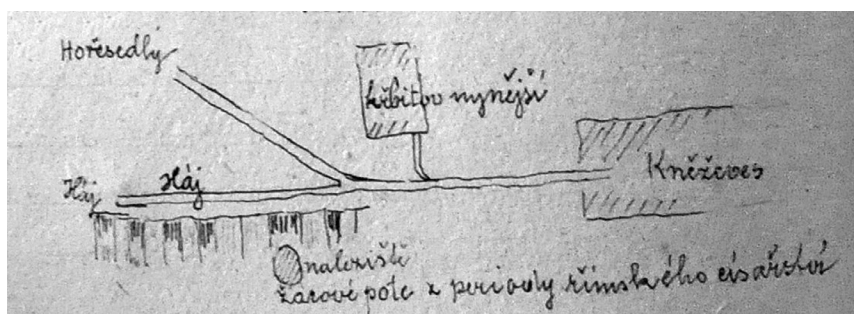 Hořesedly
hřbitov nynější
Kněževes
Háj
Háj
naleziště
žárové pole z periody římského císařství